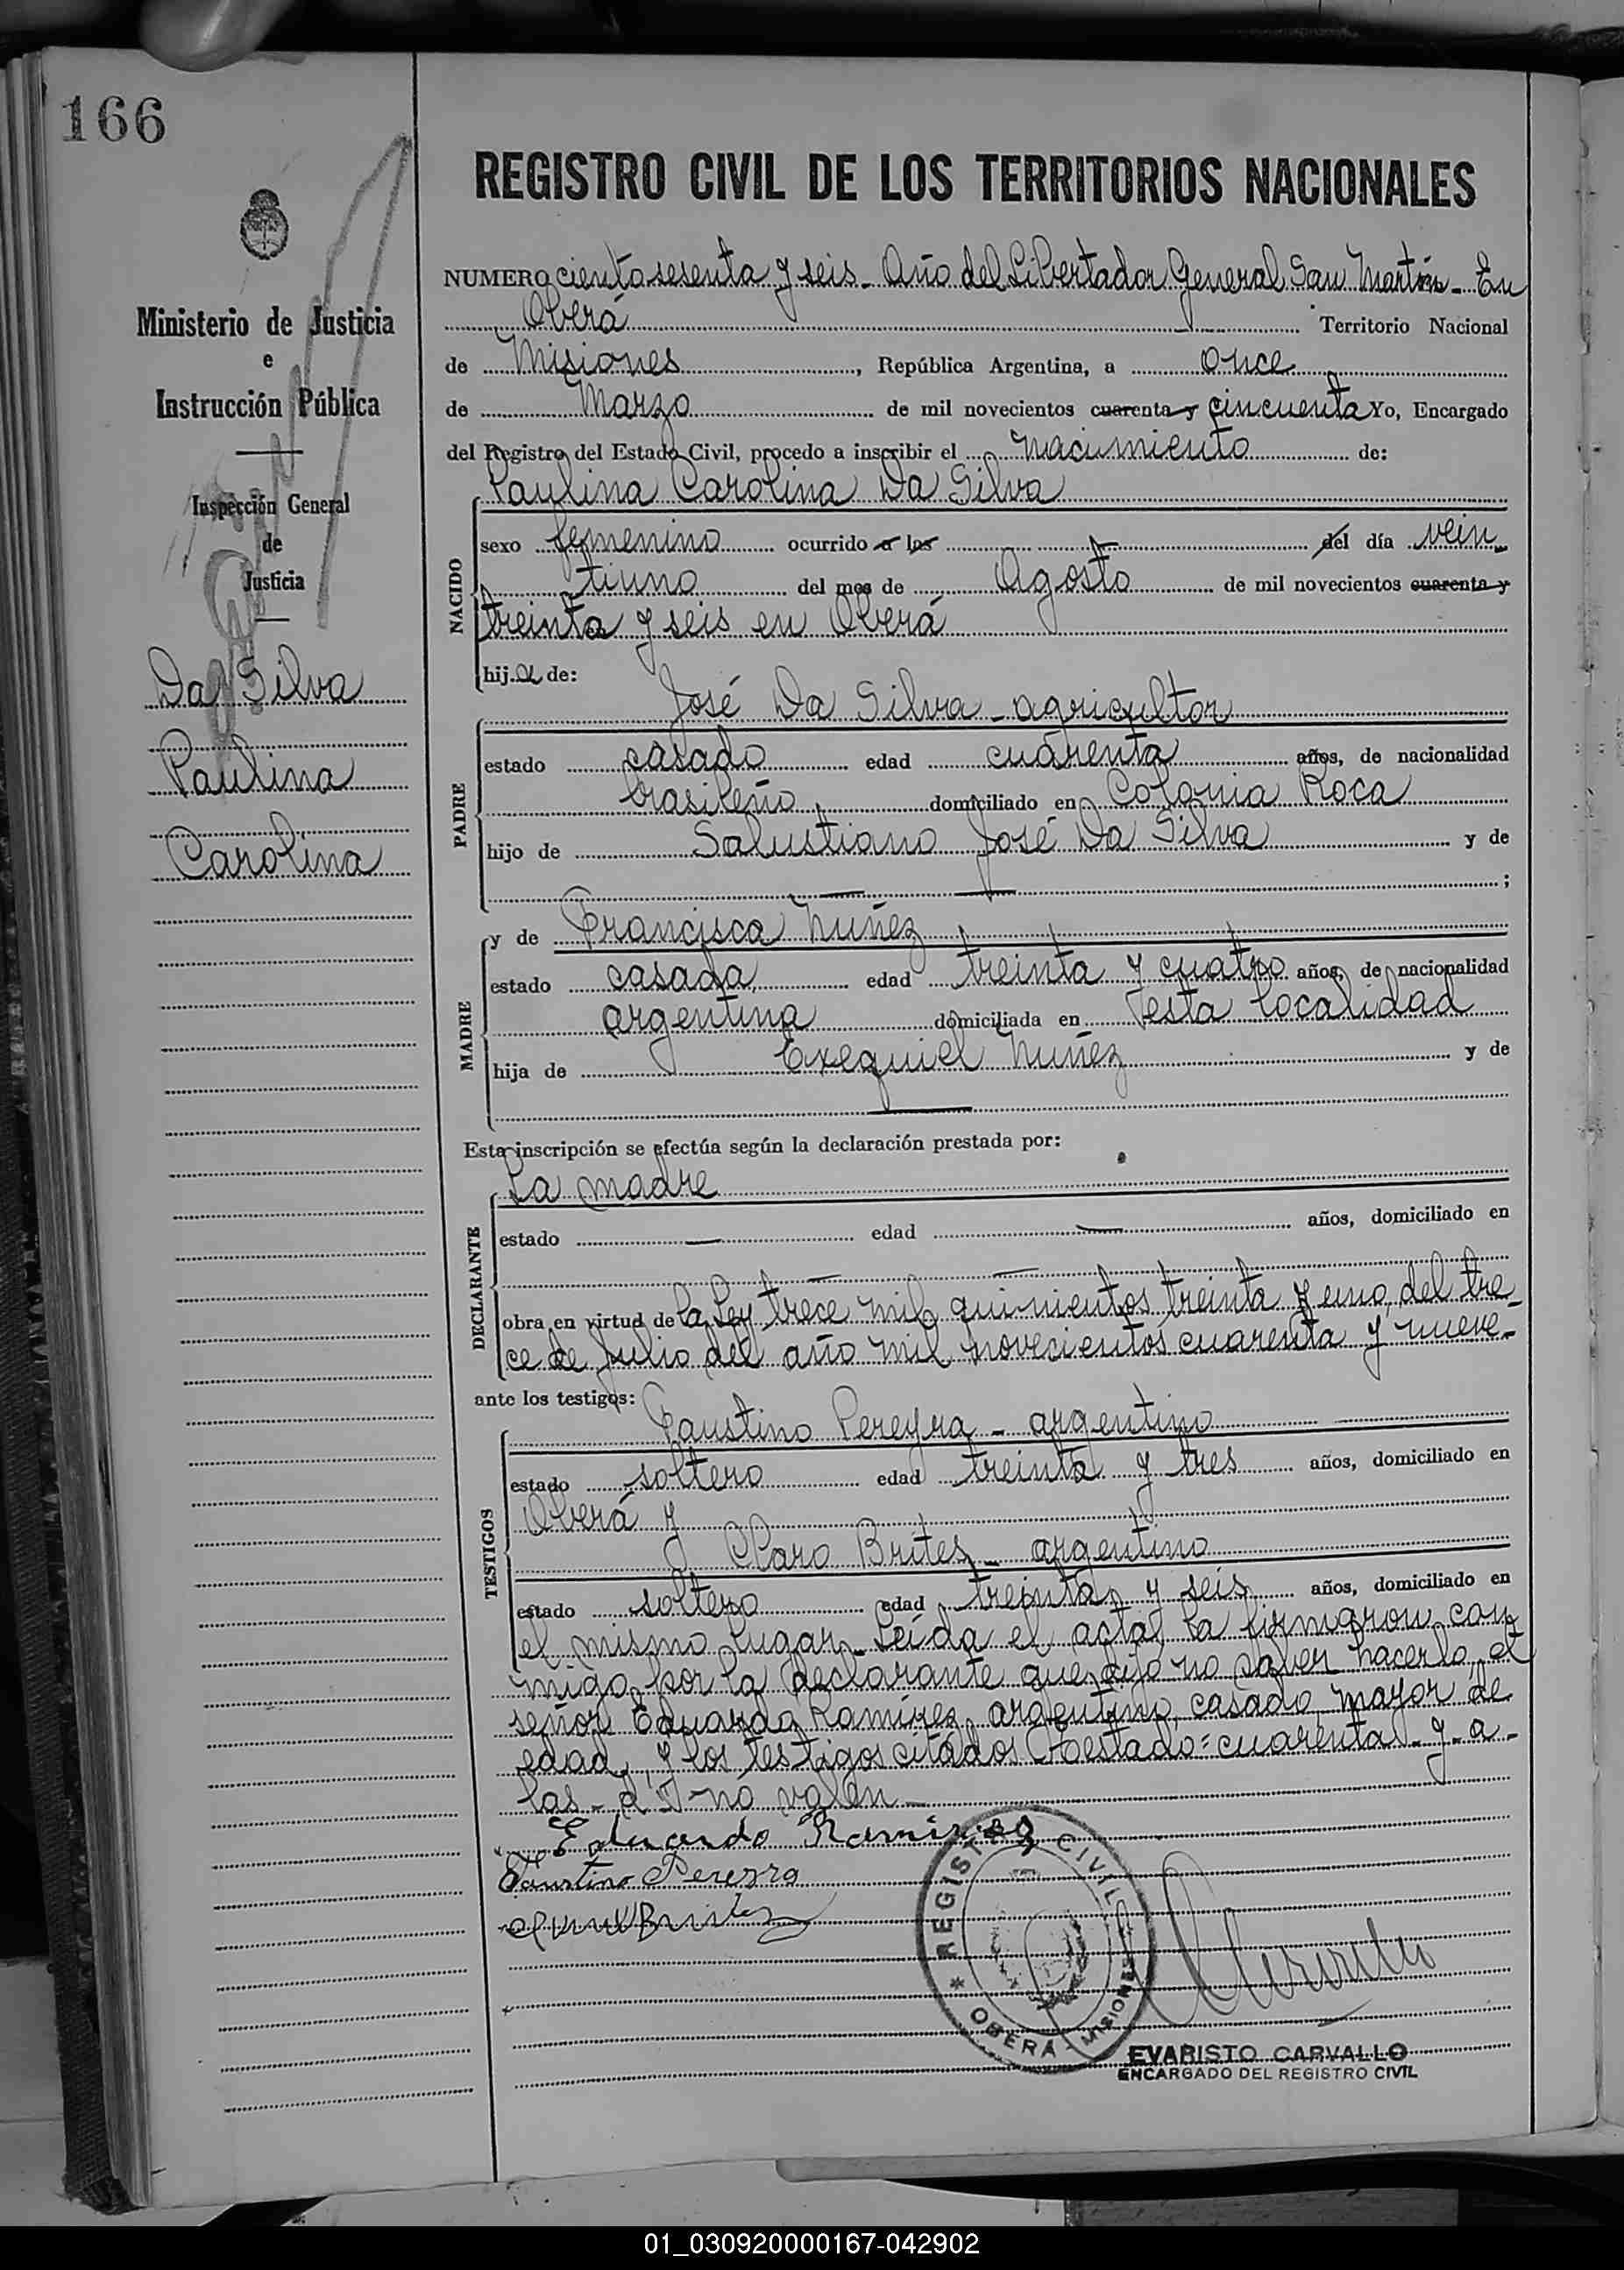 166
REGISTRO CIVIL DE LOS TERRITORIOS NACIONALES
Ministerio de Justicia
e
Instrucción Pública
Inspección General
de
Justicia
Da Silva
Paulina
Carolina
NUMERO ciento sesenta y seis - Año del Libertador General San Martín - En
Oberá Territorio Nacional
de Misiones, República Argentina, a once
de Marzo de mil novecientos cuarenta y cincuenta Yo, Encargado
del Registro del Estado Civil, procedo a inscribir el nacimiento de:
Paulina Carolina Da Silva
NACIDO
sexo femenino ocurrido a las del día vein
tiuno del mes de Agosto de mil novecientos cuarenta y
treinta y seis en Oberá
hija de:
José Da Silva - agricultor
PADRE
estado casado edad cuarenta años, de nacionalidad
brasileño, domiciliado en Colonia Roca
hijo de Salustiano José Da Silva y de
— — ;
y de Francisca Nuñez
MADRE
estado casada edad treinta y cuatro años, de nacionalidad
argentina domiciliada en esta localidad
hija de Exequiel Nuñez y de
—
Esta inscripción se efectúa según la declaración prestada por:
La madre
DECLARANTE
estado — edad — años, domiciliado en
— —
obra en virtud de la Ley trece mil quinientos treinta y uno del tre_
ce de Julio del año mil novecientos cuarenta y nueve -
ante los testigos:
Faustino Pereyra - argentino
TESTIGOS
estado soltero edad treinta y tres años, domiciliado en
Oberá y
Claro Brites - argentino
estado soltero edad treinta y seis años, domiciliado en
el mismo lugar - Leída el acta, la firmaron con
migo, por la declarante que dijo no saber hacerlo, el
señor Eduardo Ramírez, argentino, casado, mayor de
edad, y los testigos citados testado: cuarenta - y - a -
las - no valen -
Eduardo Ramirez
Faustino Pereyra
Brites
REGISTRO CIVIL
* OBERÁ - MISIONES
EVARISTO CARVALLO
ENCARGADO DEL REGISTRO CIVIL
01_030920000167-042902